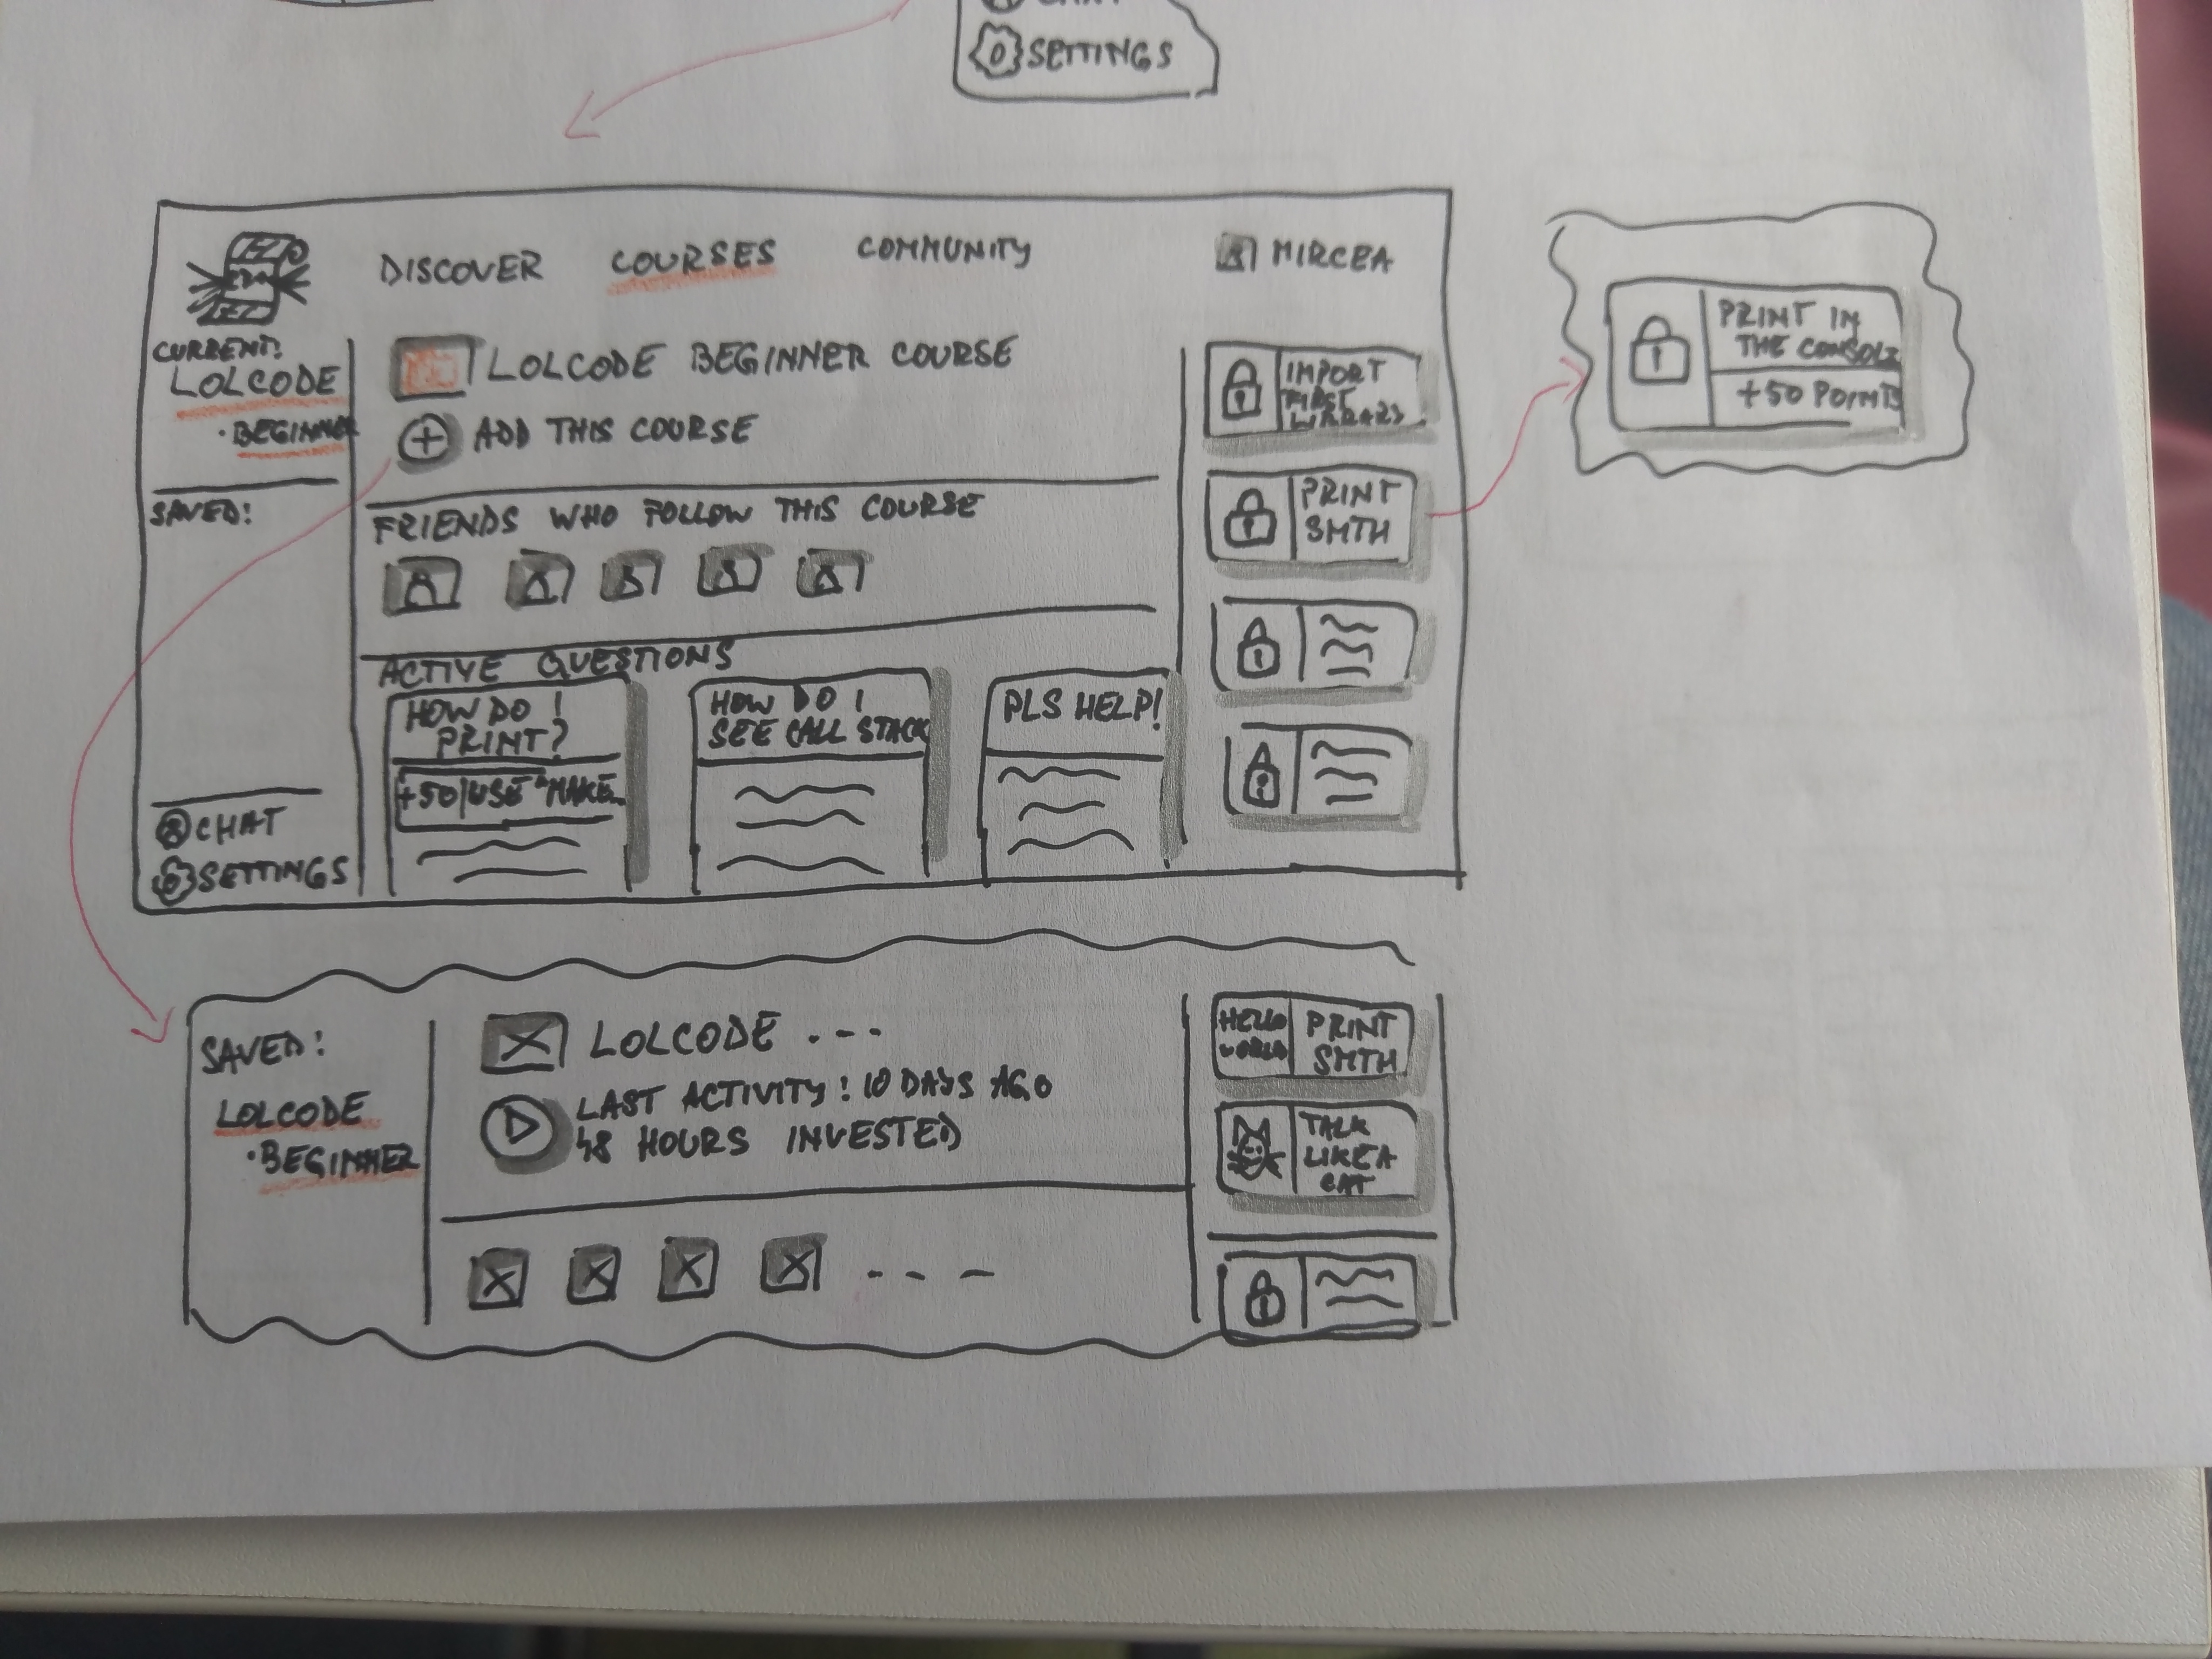 SETTINGS
DISCOVER
COURSES
COMMUNITY
MIRCEA
CURRENT:
LOLCODE
· BEGINNER
SAVED:
CHAT
SETTINGS
LOLCODE BEGINNER COURSE
ADD THIS COURSE
FRIENDS WHO FOLLOW THIS COURSE
ACTIVE QUESTIONS
HOW DO I
PRINT?
+50 USE "MAKE
HOW DO I
SEE CALL STACK
PLS HELP!
IMPORT
FIRST
LIBRARY
PRINT
SMTH
PRINT IN
THE CONSOLE
+50 POINTS
SAVED:
LOLCODE
· BEGINNER
LOLCODE ---
LAST ACTIVITY: 10 DAYS AGO
48 HOURS INVESTED
---
HELLO
WORLD
PRINT
SMTH
TALK
LIKE A
CAT